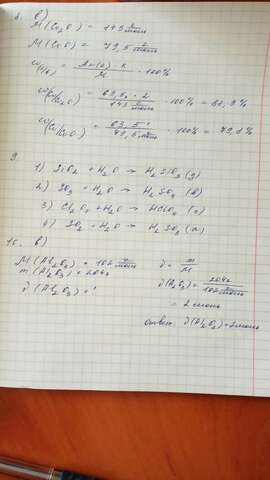 8. в)
M(Cu₂O) = 143 г/моль
M(CuO) = 79,5 г/моль
ω(Э) = Ar(Э) · K / M · 100%
ω(Cu/Cu₂O) = 63,5 · 2 / 143 · 100% = 88,8%
ω(Cu/CuO) = 63,5 / 79,5 · 100% = 79,8%
9
1) SiO₂ + H₂O → H₂SiO₃ (д)
2) SO₃ + H₂O → H₂SO₄ (в)
3) Cl₂O₇ + H₂O → HClO₄ (г)
4) SO₂ + H₂O → H₂SO₃ (а)
10. в)
M(Al₂O₃) = 102 г/моль
m(Al₂O₃) = 204г
ν(Al₂O₃) = ?
ν = m / M
ν(Al₂O₃) = 204г / 102 г/моль
= 2 моль
ответ: ν(Al₂O₃) = 2моль